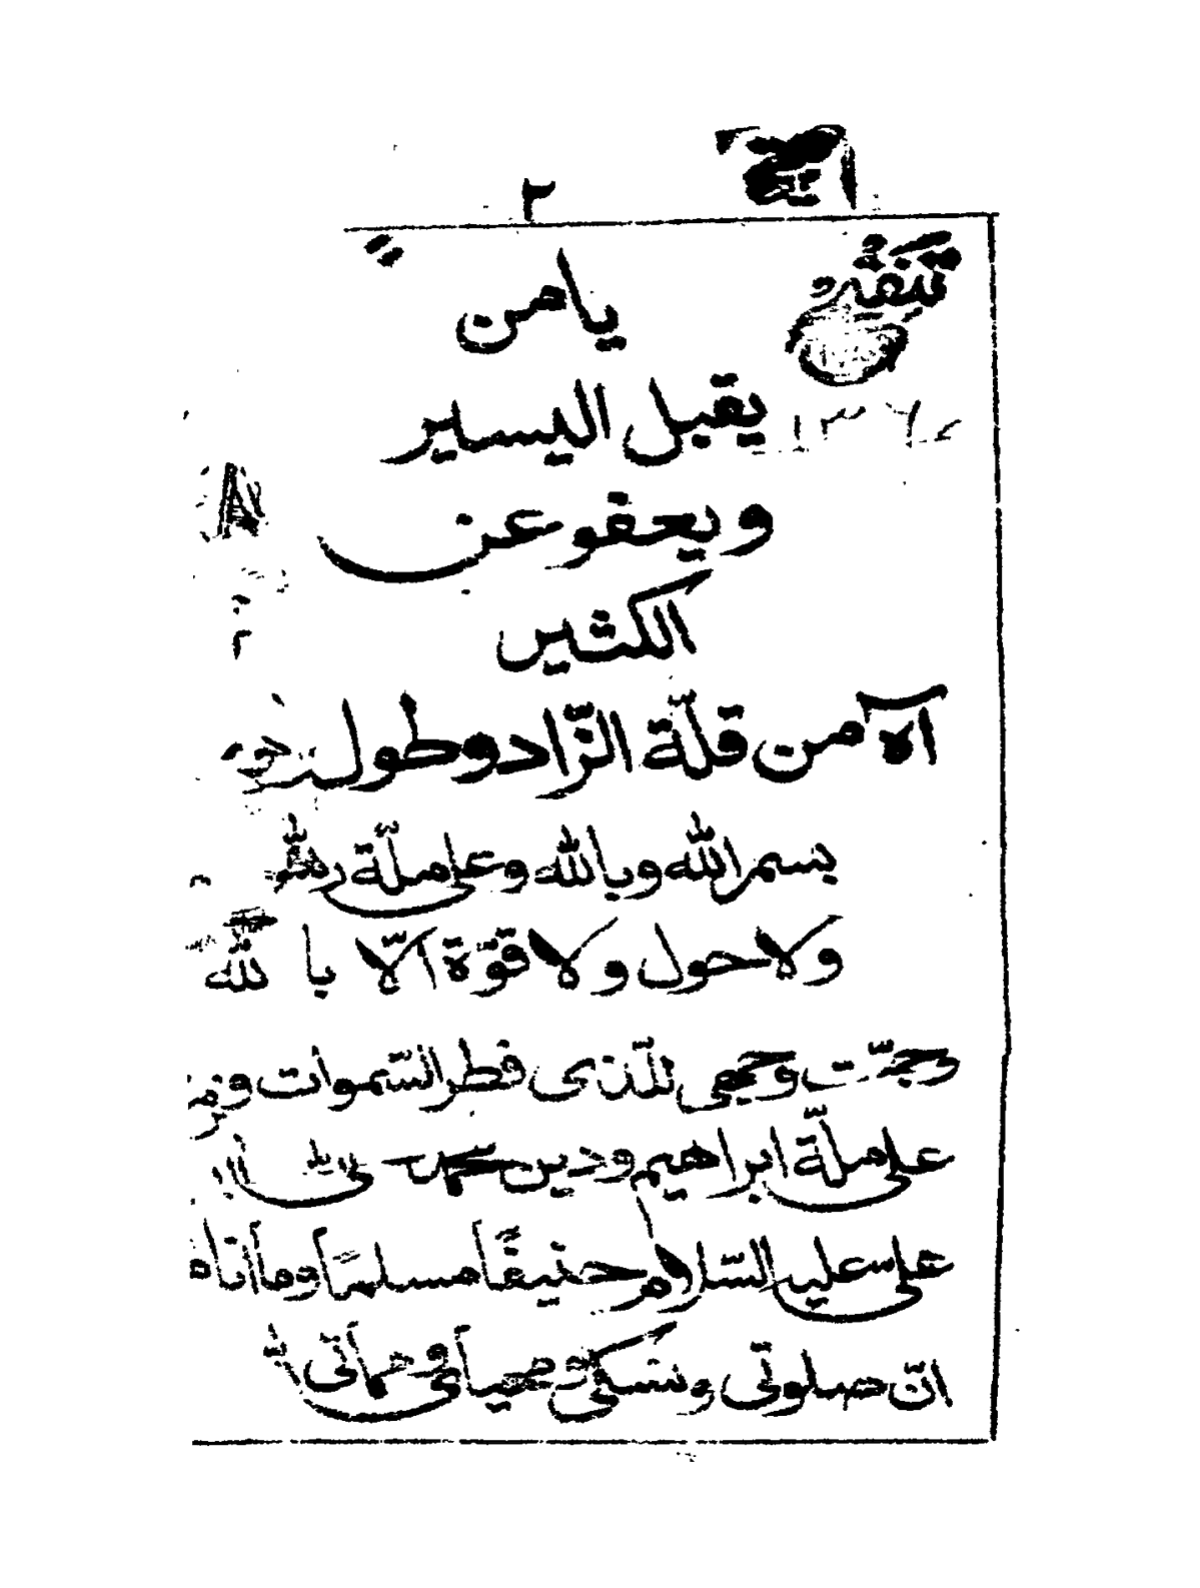 ٢
يا من
يقبل اليسير
ويعفو عن
الكثير
آه من قلّة الزّاد وطول
بسم الله وبالله وعلى ملّة
ولا حول ولا قوّة الّا بالله
وجّهت وجهي للّذى فطر السّموات
على ملّة ابراهيم ودين محمد
على عليه السّلام حنيفًا مسلمًا وما أنا
انّ صلوتى ونسكى ومحياى ومماتى لله